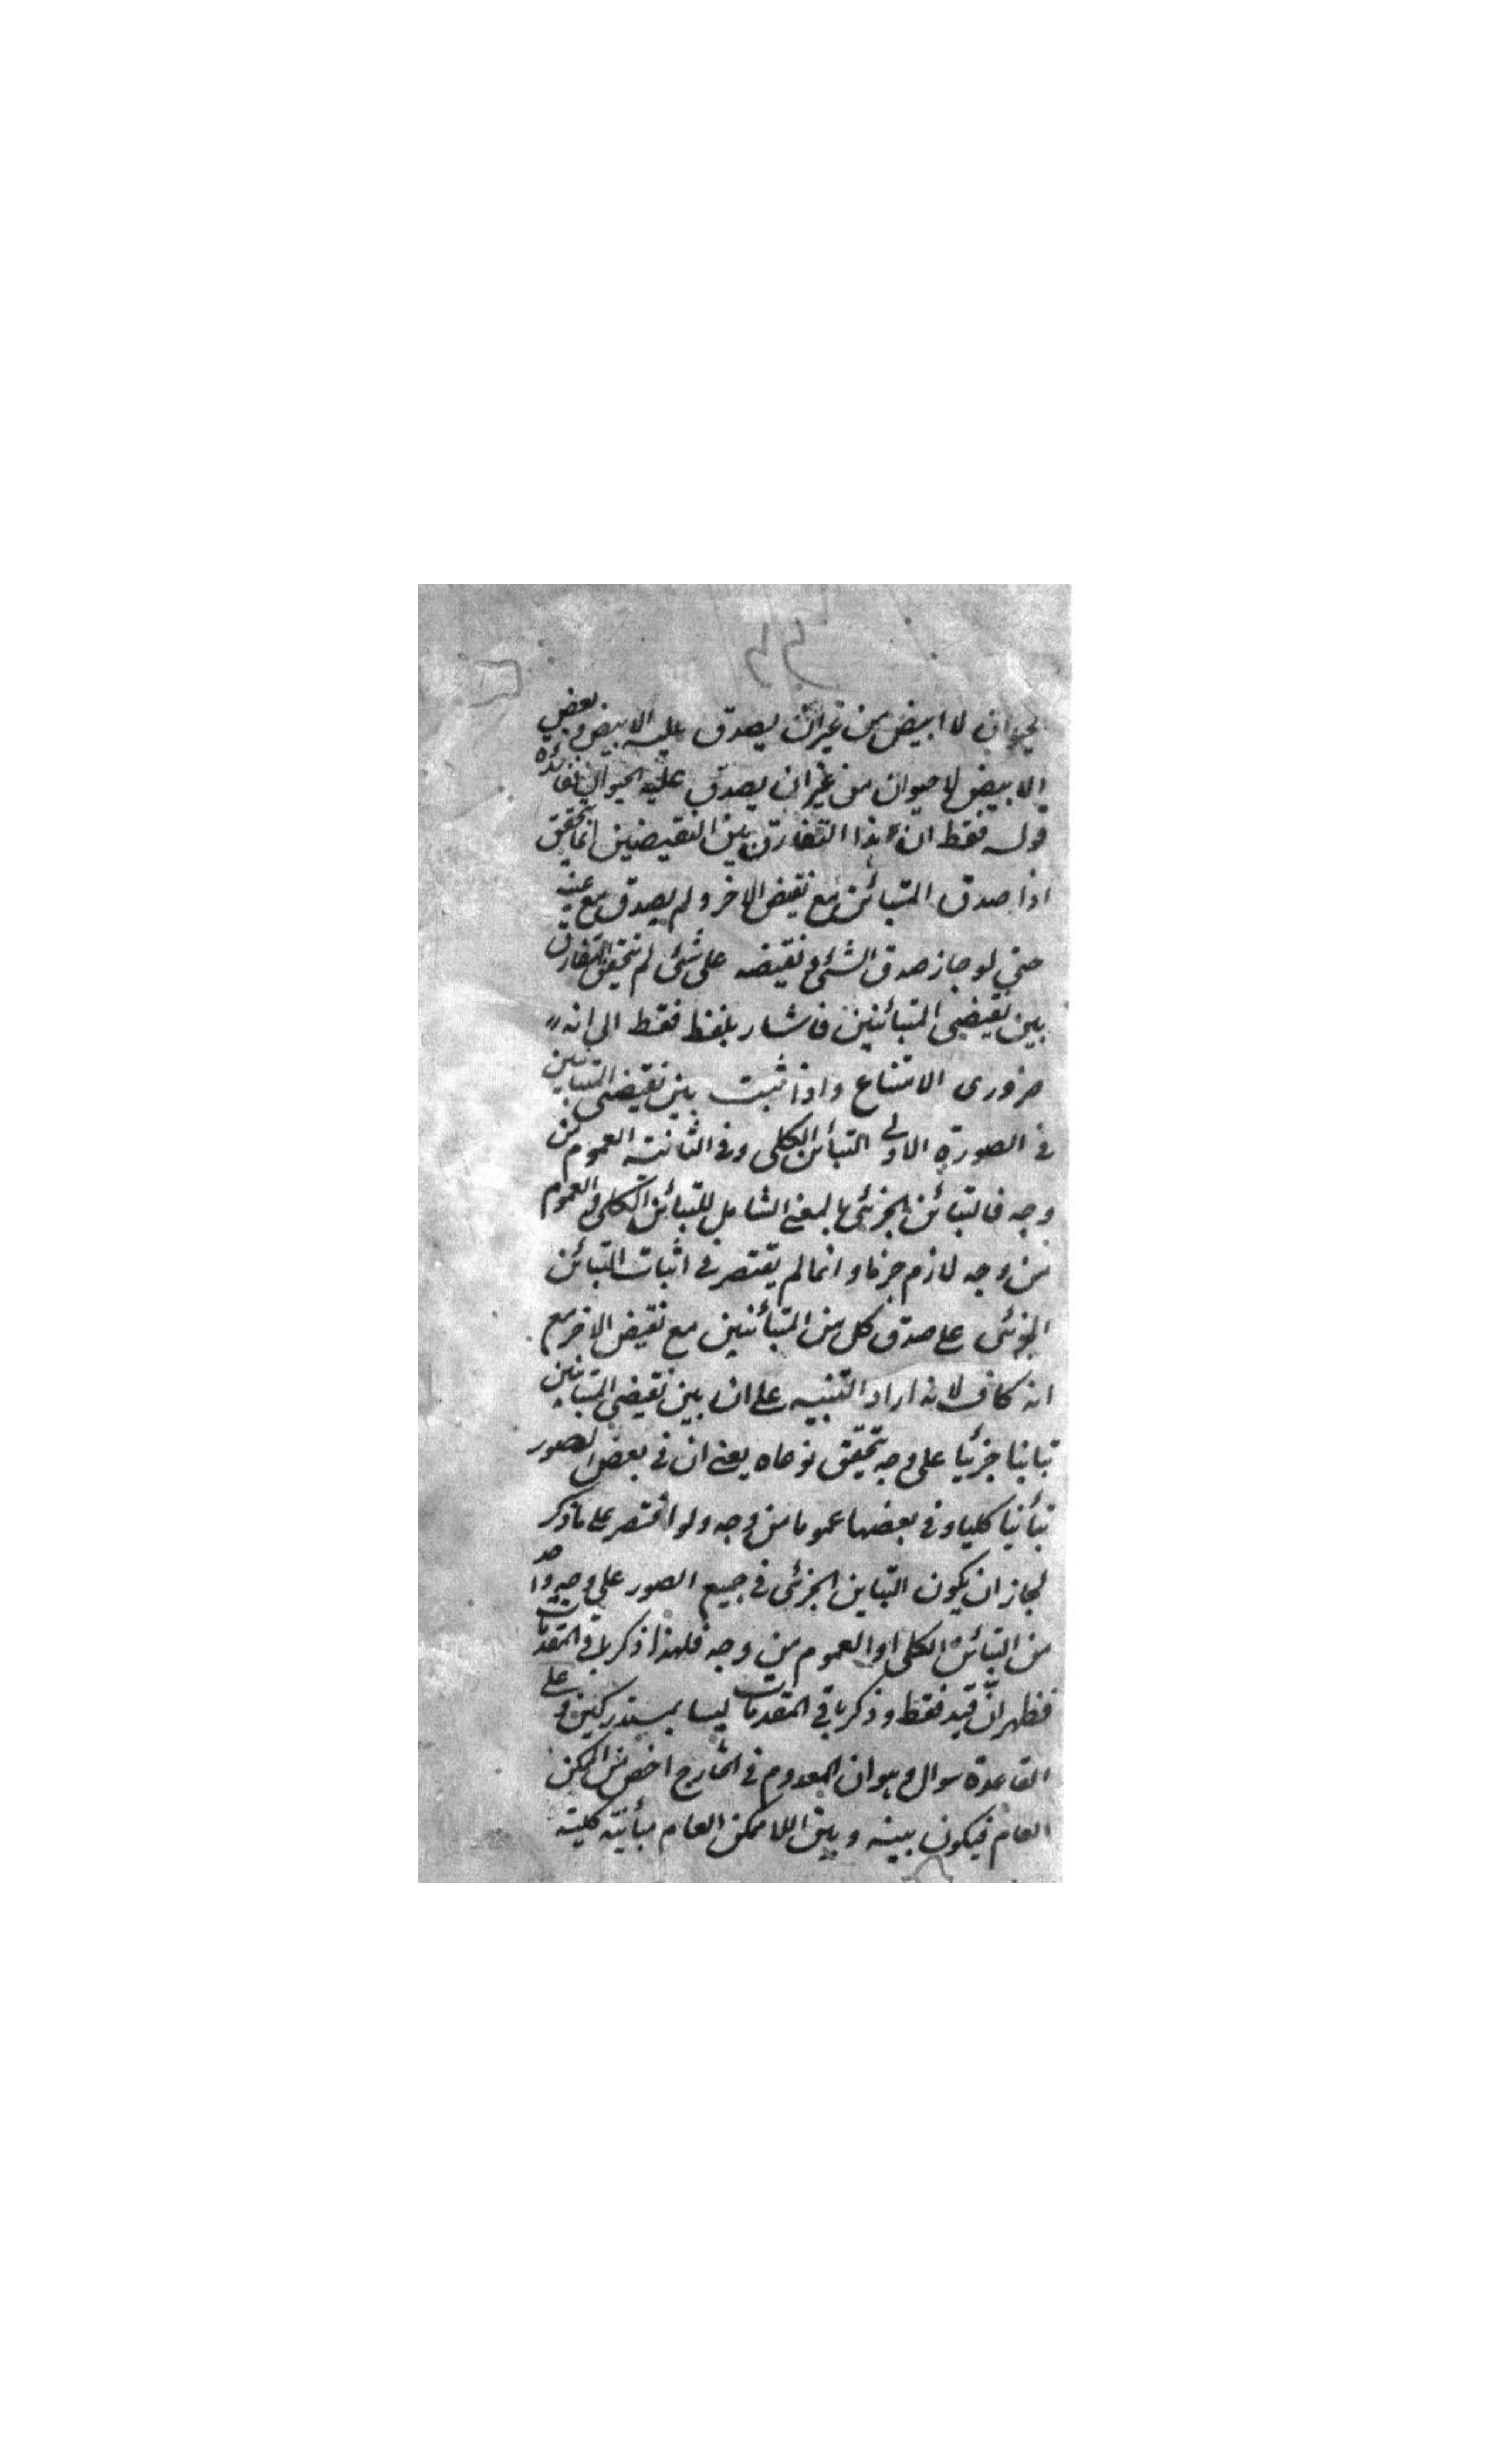 الحيوان لا ابيض من غير ان يصدق عليه الابيض وبعض
الابيض لا حيوان من غير ان يصدق عليه الحيوان ففائدة
قوله فقط ان هذا التفارق بين النقيضين انما يتحقق
اذا صدق المتبائن مع نقيض الاخر ولم يصدق مع عينه
حتي لو جاز صدق الشئ ونقيضه على شئ لم يتحقق التفارق
بين نقيضي المتبائنين فاشار بلفظ فقط الى انه
ضرورى الامتناع واذا ثبت بين نقيضى المتباينين
فى الصورة الاولى التبائن الكلى وفى الثانية العموم من
وجه فالتبائن الجزئى بالمعنى الشامل للتبائن الكلى والعموم
من وجه لازم جزما وانما لم يقتصر فى اثبات التبائن
الجزئى على صدق كل من المتبأئنين مع نقيض الاخر مع
انه كاف لانه اراد التنبيه على ان بين نقيضى المتباينين
تباينا جزئيا على وجه يتحقق نوعاه يعنى ان فى بعض الصور
تبأئنا كليا وفى بعضها عموما من وجه ولو اقتصر على ما ذكر
لجاز ان يكون التباين الجزئى فى جميع الصور على وجه واحد
من التبائن الكلى او العموم من وجه فلهذا ذكر باقى المقدمات
فظهر انّ قيد فقط وذكر باقى المقدمات ليسا بمستدركين وعلى
القاعدة سوال وهو ان المعدوم فى الخارج اخص من الممكن
العام فيكون بينه وبين اللاممكن العام مبأئنة كلية